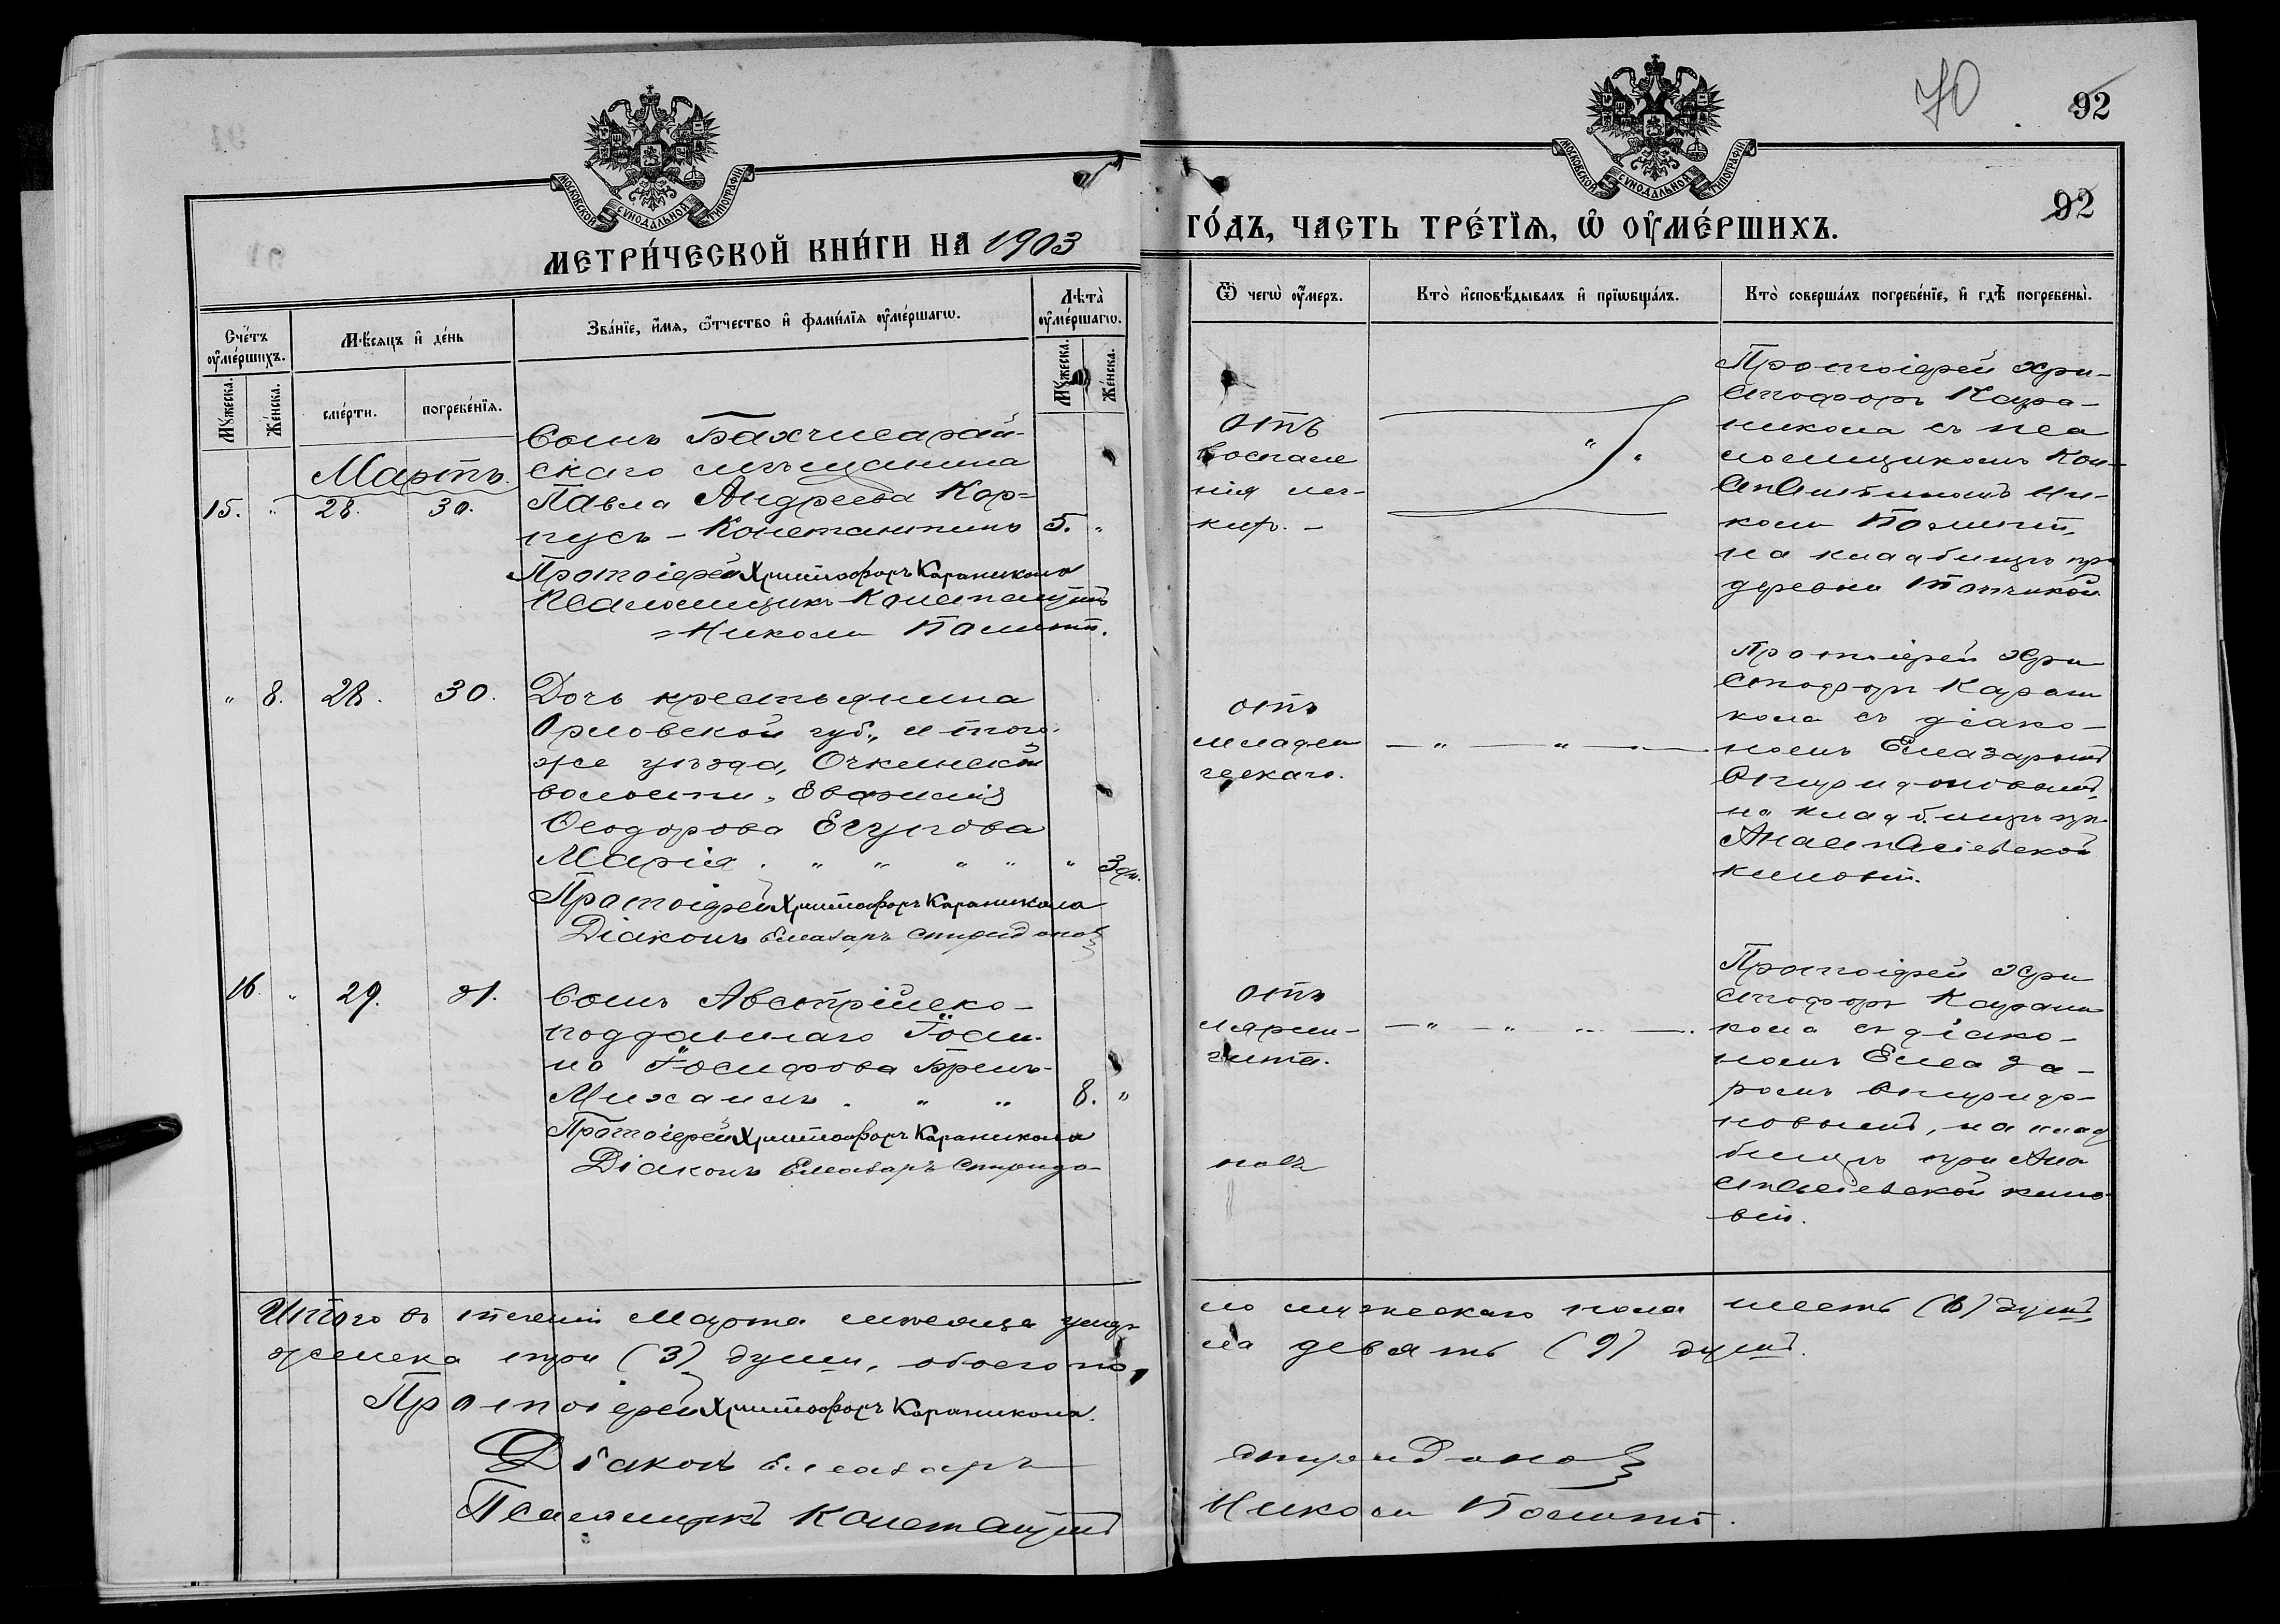 70
92
МОСКОВСКОЙ СѴНОДАЛЬНОЙ ТИПОГРАФІИ
МОСКОВСКОЙ СѴНОДАЛЬНОЙ ТИПОГРАФІИ
92
МЕТРИ́ЧЕСКОЙ КНИ́ГИ НА 1903
ГО́ДЪ, ЧАСТЬ ТРЕ́ТЇѦ, Ѡ҆ ОУ҆МЕ́РШИХЪ.
Сче́тъ оу҆ме́ршихъ.
Мꙋ́жеска.
Же́нска.
Мѣ́сѧцъ и҆ де́нь
сме́рти.
погребе́нїѧ.
Зва́нїе, и҆́мѧ, ѻ҆́тчество и҆ фами́лїѧ оу҆ме́ршагѡ.
Лѣта̀ оу҆ме́ршагѡ.
Мꙋ́жеска.
Же́нска.
Ѿ чегѡ̀ оу҆́меръ.
Кто̀ и҆сповѣ́дывалъ и҆ прїѡбща́лъ.
Кто̀ соверша́лъ погребе́нїе, и҆ гдѣ̀ погребены̀.
Мартъ.
15. " 28. 30.
Сынъ Бахчисарай-
скаго мѣщанина
Павла Андреева Кор-
пусъ - Константинъ 5. "
Протоіерей Христофоръ Караникола
Псаломщикъ Константинъ
= Николи Палитъ.
отъ
воспале
нія лег-
кихъ. -
Протоіерей Хри-
стофоръ Кара-
никола съ пса
ломщикомъ Кон-
стантиномъ Ни-
коли
на кладбищѣ при
деревни
" 8. 28. 30.
Дочь крестьянина
Орловской губ., и того-
же уѣзда, Очкинской
волости,
Ѳеодорова
Марія . " " " " " 3 дн.
Протоіерей Христофоръ Караникола
Діаконъ Елеазаръ Спиридоновъ
отъ
младен
ческаго.
— " — " — —
Протоіерей Хри
стофоръ Карани
кола съ діако-
номъ Елеазаромъ
Спиридоновымъ,
на кладбищѣ при
Анастасіевской
киновіи.
16. " 29. 31.
Сынъ Австрійско-
подданнаго Іоси-
Іосифова
Михаилъ . " " 8. "
Протоіерей Христофоръ Караникола
Діаконъ Елеазаръ Спиридо-
новъ
отъ
ларин-
гита.
— " — " — —.
Протоіерей Хри
стофоръ Карани
кола съ діако-
номъ Елеаза-
ромъ Спиридо-
новымъ, на клад
бищѣ при Ана
стасіевской кино
віи.
Итого въ теченіи Марта мѣсяца умер-
ло мужескаго пола шесть (6) душъ,
женска три (3) души, обоего по-
ла девять (9) душъ.
Протоіерей Христофоръ Караникола.
Діаконъ Елеазаръ Спиридоновъ
Псаломщикъ Константинъ Николи